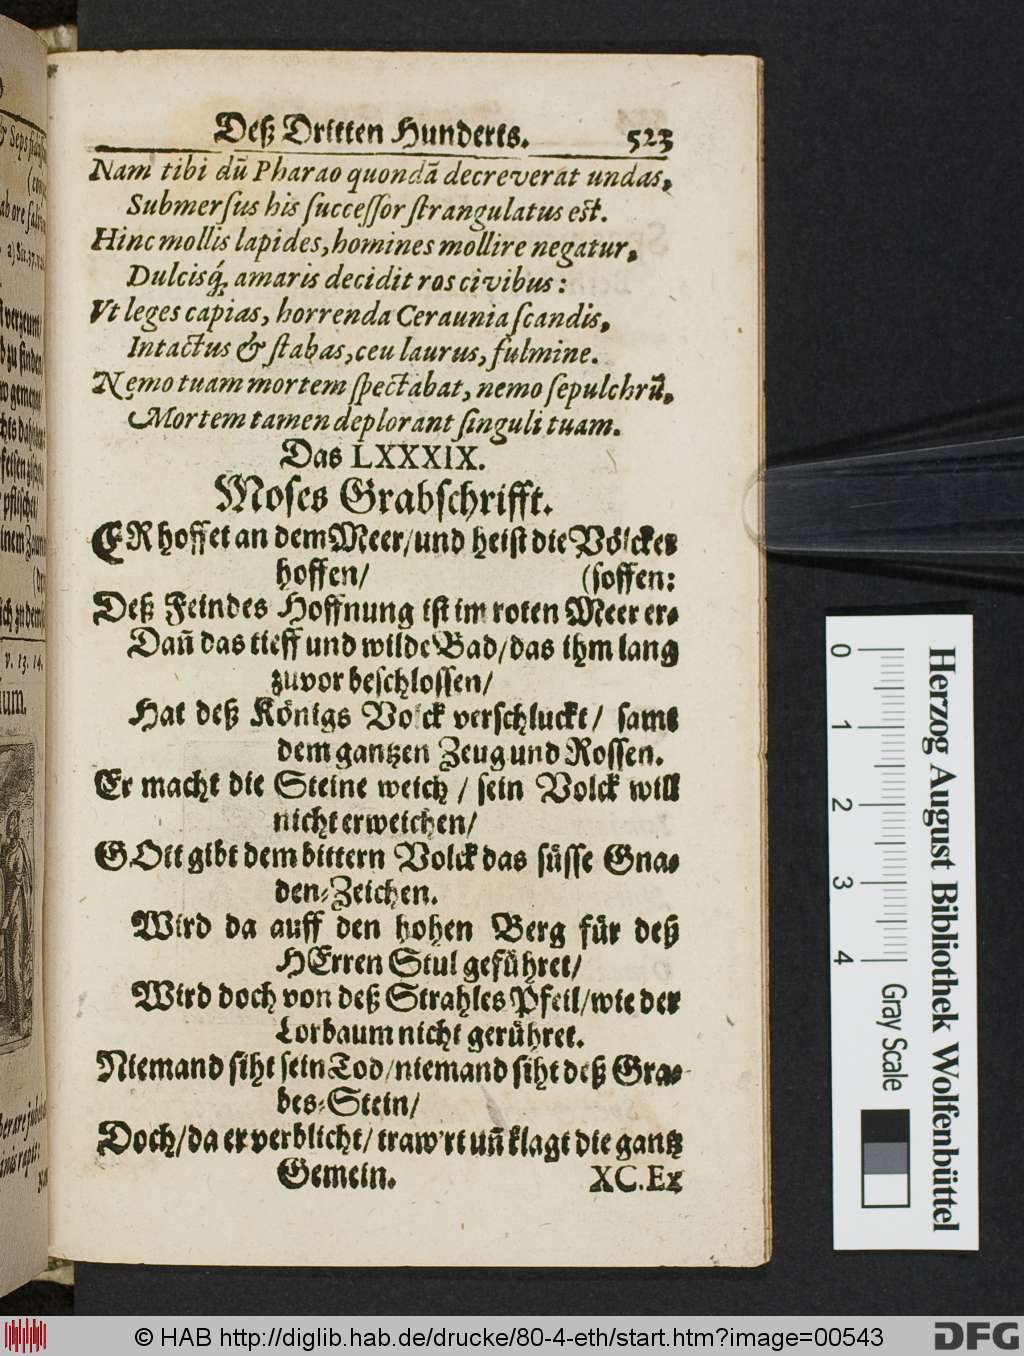 Deß Dritten Hunderts. 523
Nam tibi dū Pharao quondā decreverat undas,
Submersus his successor strangulatus est.
Hinc mollis lapides, homines mollire negatur,
Dulcisq́; amaris decidit ros civibus:
Vt leges capias, horrenda Ceraunia scandis,
Intactus & stabas, ceu laurus, fulmine.
Nemo tuam mortem spectabat, nemo sepulchrū,
Mortem tamen deplorant singuli tuam.
Das LXXXIX.
Moses Grabschrifft.
ER hoffet an dem Meer/und heist die Völcker
hoffen/ (soffen:
Deß Feindes Hoffnung ist im roten Meer er-
Dañ das tieff und wilde Bad/das ihm lang
zuvor beschlossen/
Hat deß Königs Volck verschluckt/ samt
dem gantzen Zeug und Rossen.
Er macht die Steine weich/ sein Volck will
nicht erweichen/
GOtt gibt dem bittern Volck das süsse Gna-
den-Zeichen.
Wird da auff den hohen Berg für deß
HErren Stul geführet/
Wird doch von deß Strahles Pfeil/wie der
Lorbaum nicht gerühret.
Niemand siht sein Tod/niemand siht deß Gra-
bes-Stein/
Doch/da er verblicht/traw'rt uñ klagt die gantz
Gemein. XC. Ex
v. 13. 14.
ium.
0 1 2 3 4
Herzog August Bibliothek Wolfenbüttel
Gray Scale
© HAB http://diglib.hab.de/drucke/80-4-eth/start.htm?image=00543
DFG